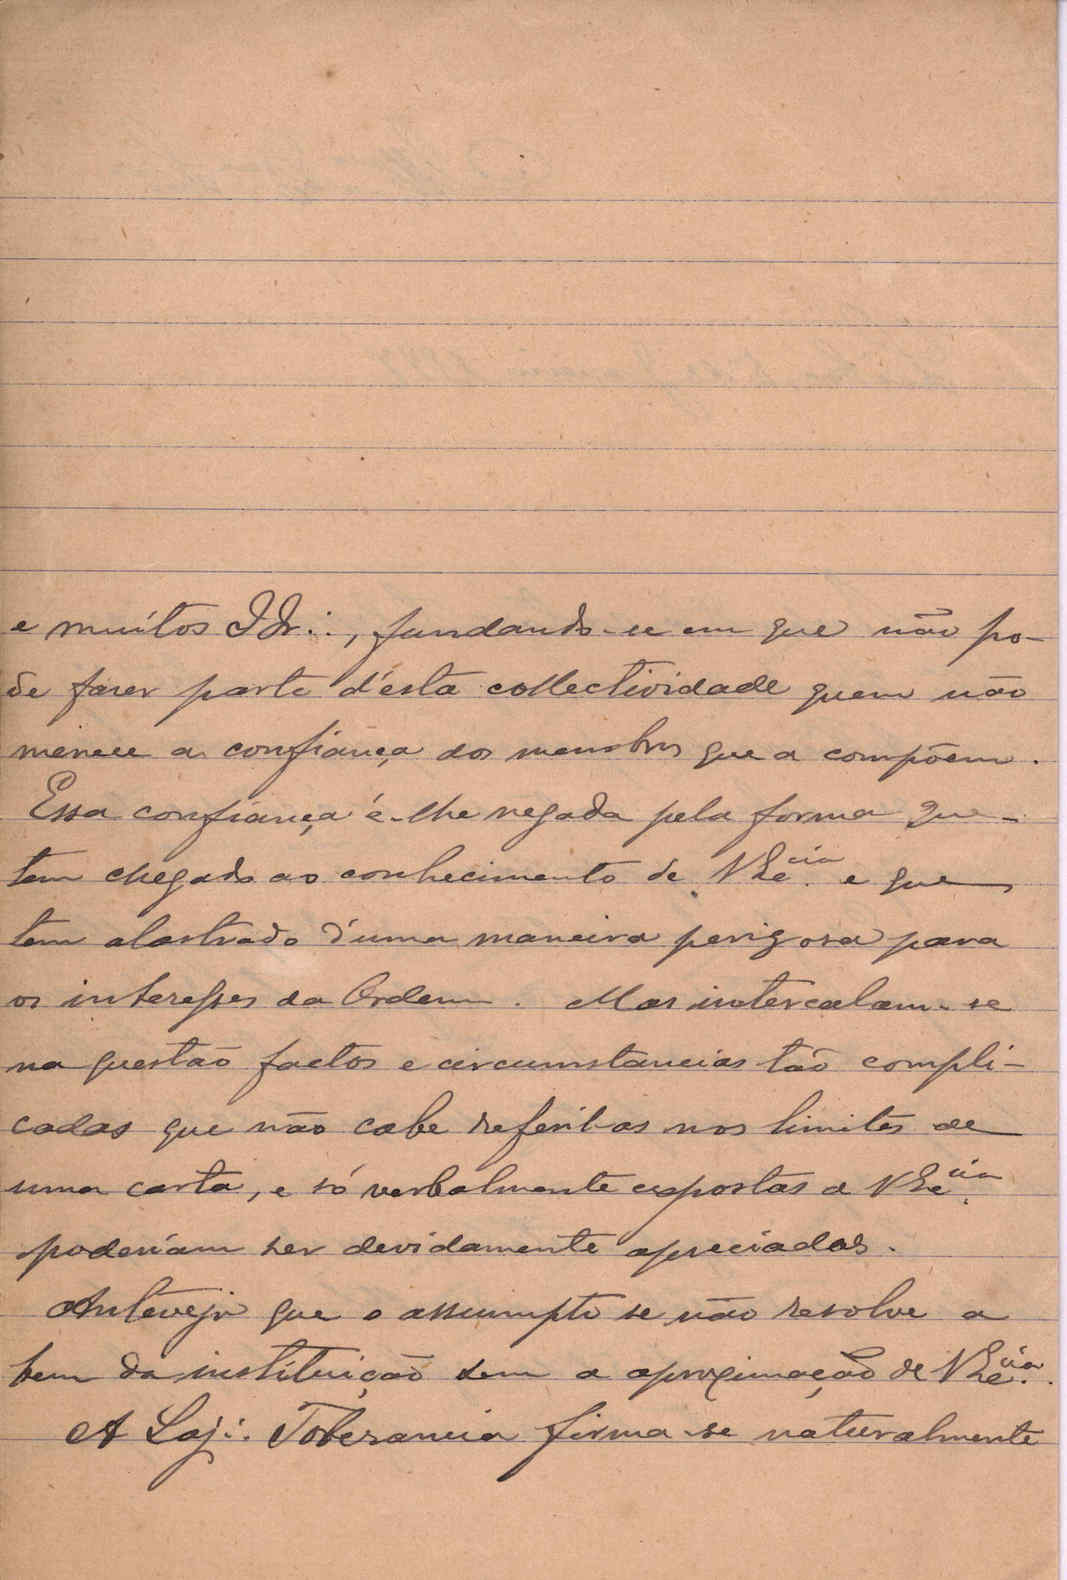 e muitos IIr∴, fundando-se em que não po-
de fazer parte d'esta collectividade quem não
merece a confiança dos membros que a compõem.
Essa confiança é-lhe negada pela forma que-
tem chegado ao conhecimento de V Ex.cia e que
tem alastrado d'uma maneira perigosa para
os interesses da Ordem. Mas intercalam-se
na questão factos e circumstancias tão compli-
cadas que não cabe referil-as nos limites de
uma carta, e só verbalmente expostas a V Ex.cia
poderiam ser devidamente apreciadas.
Antevejo que o assumpto se não resolve a
bem da instituição sem a aproximação de V Ex.cia.
A Loj∴ Tolerancia firma-se naturalmente